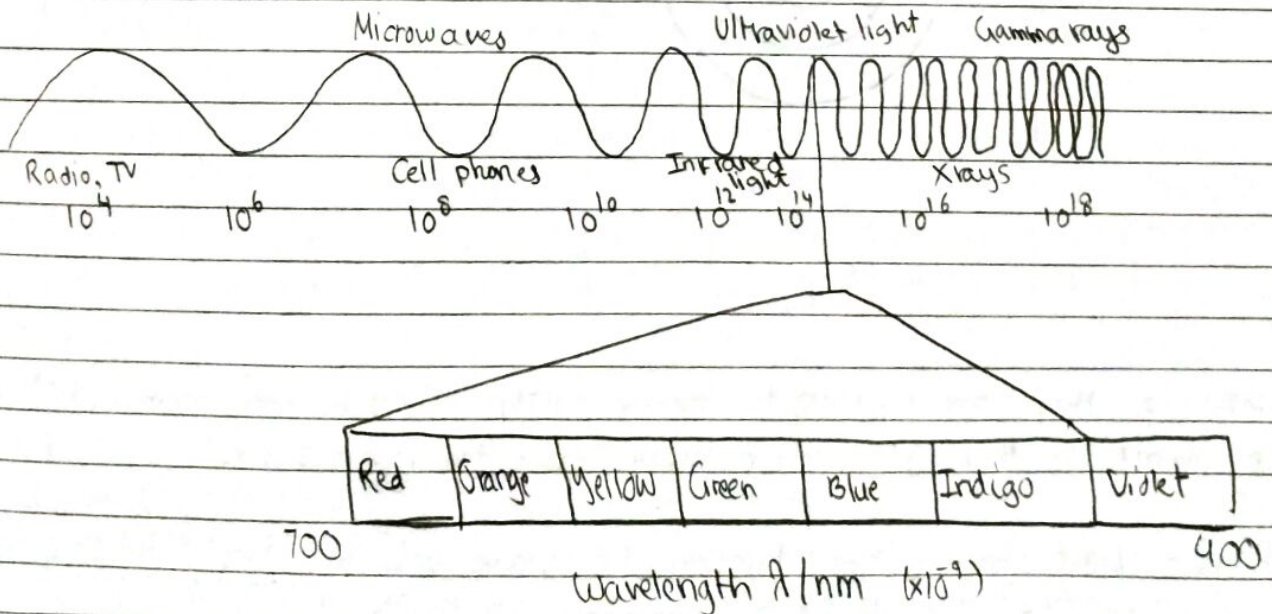 Microwaves Ultraviolet light Gamma rays
Radio, TV Cell phones Infrared light X rays
10⁴ 10⁶ 10⁸ 10¹⁰ 10¹² 10¹⁴ 10¹⁶ 10¹⁸
Red Orange Yellow Green Blue Indigo Violet
700 400
Wavelength λ/nm (x10⁻⁹)